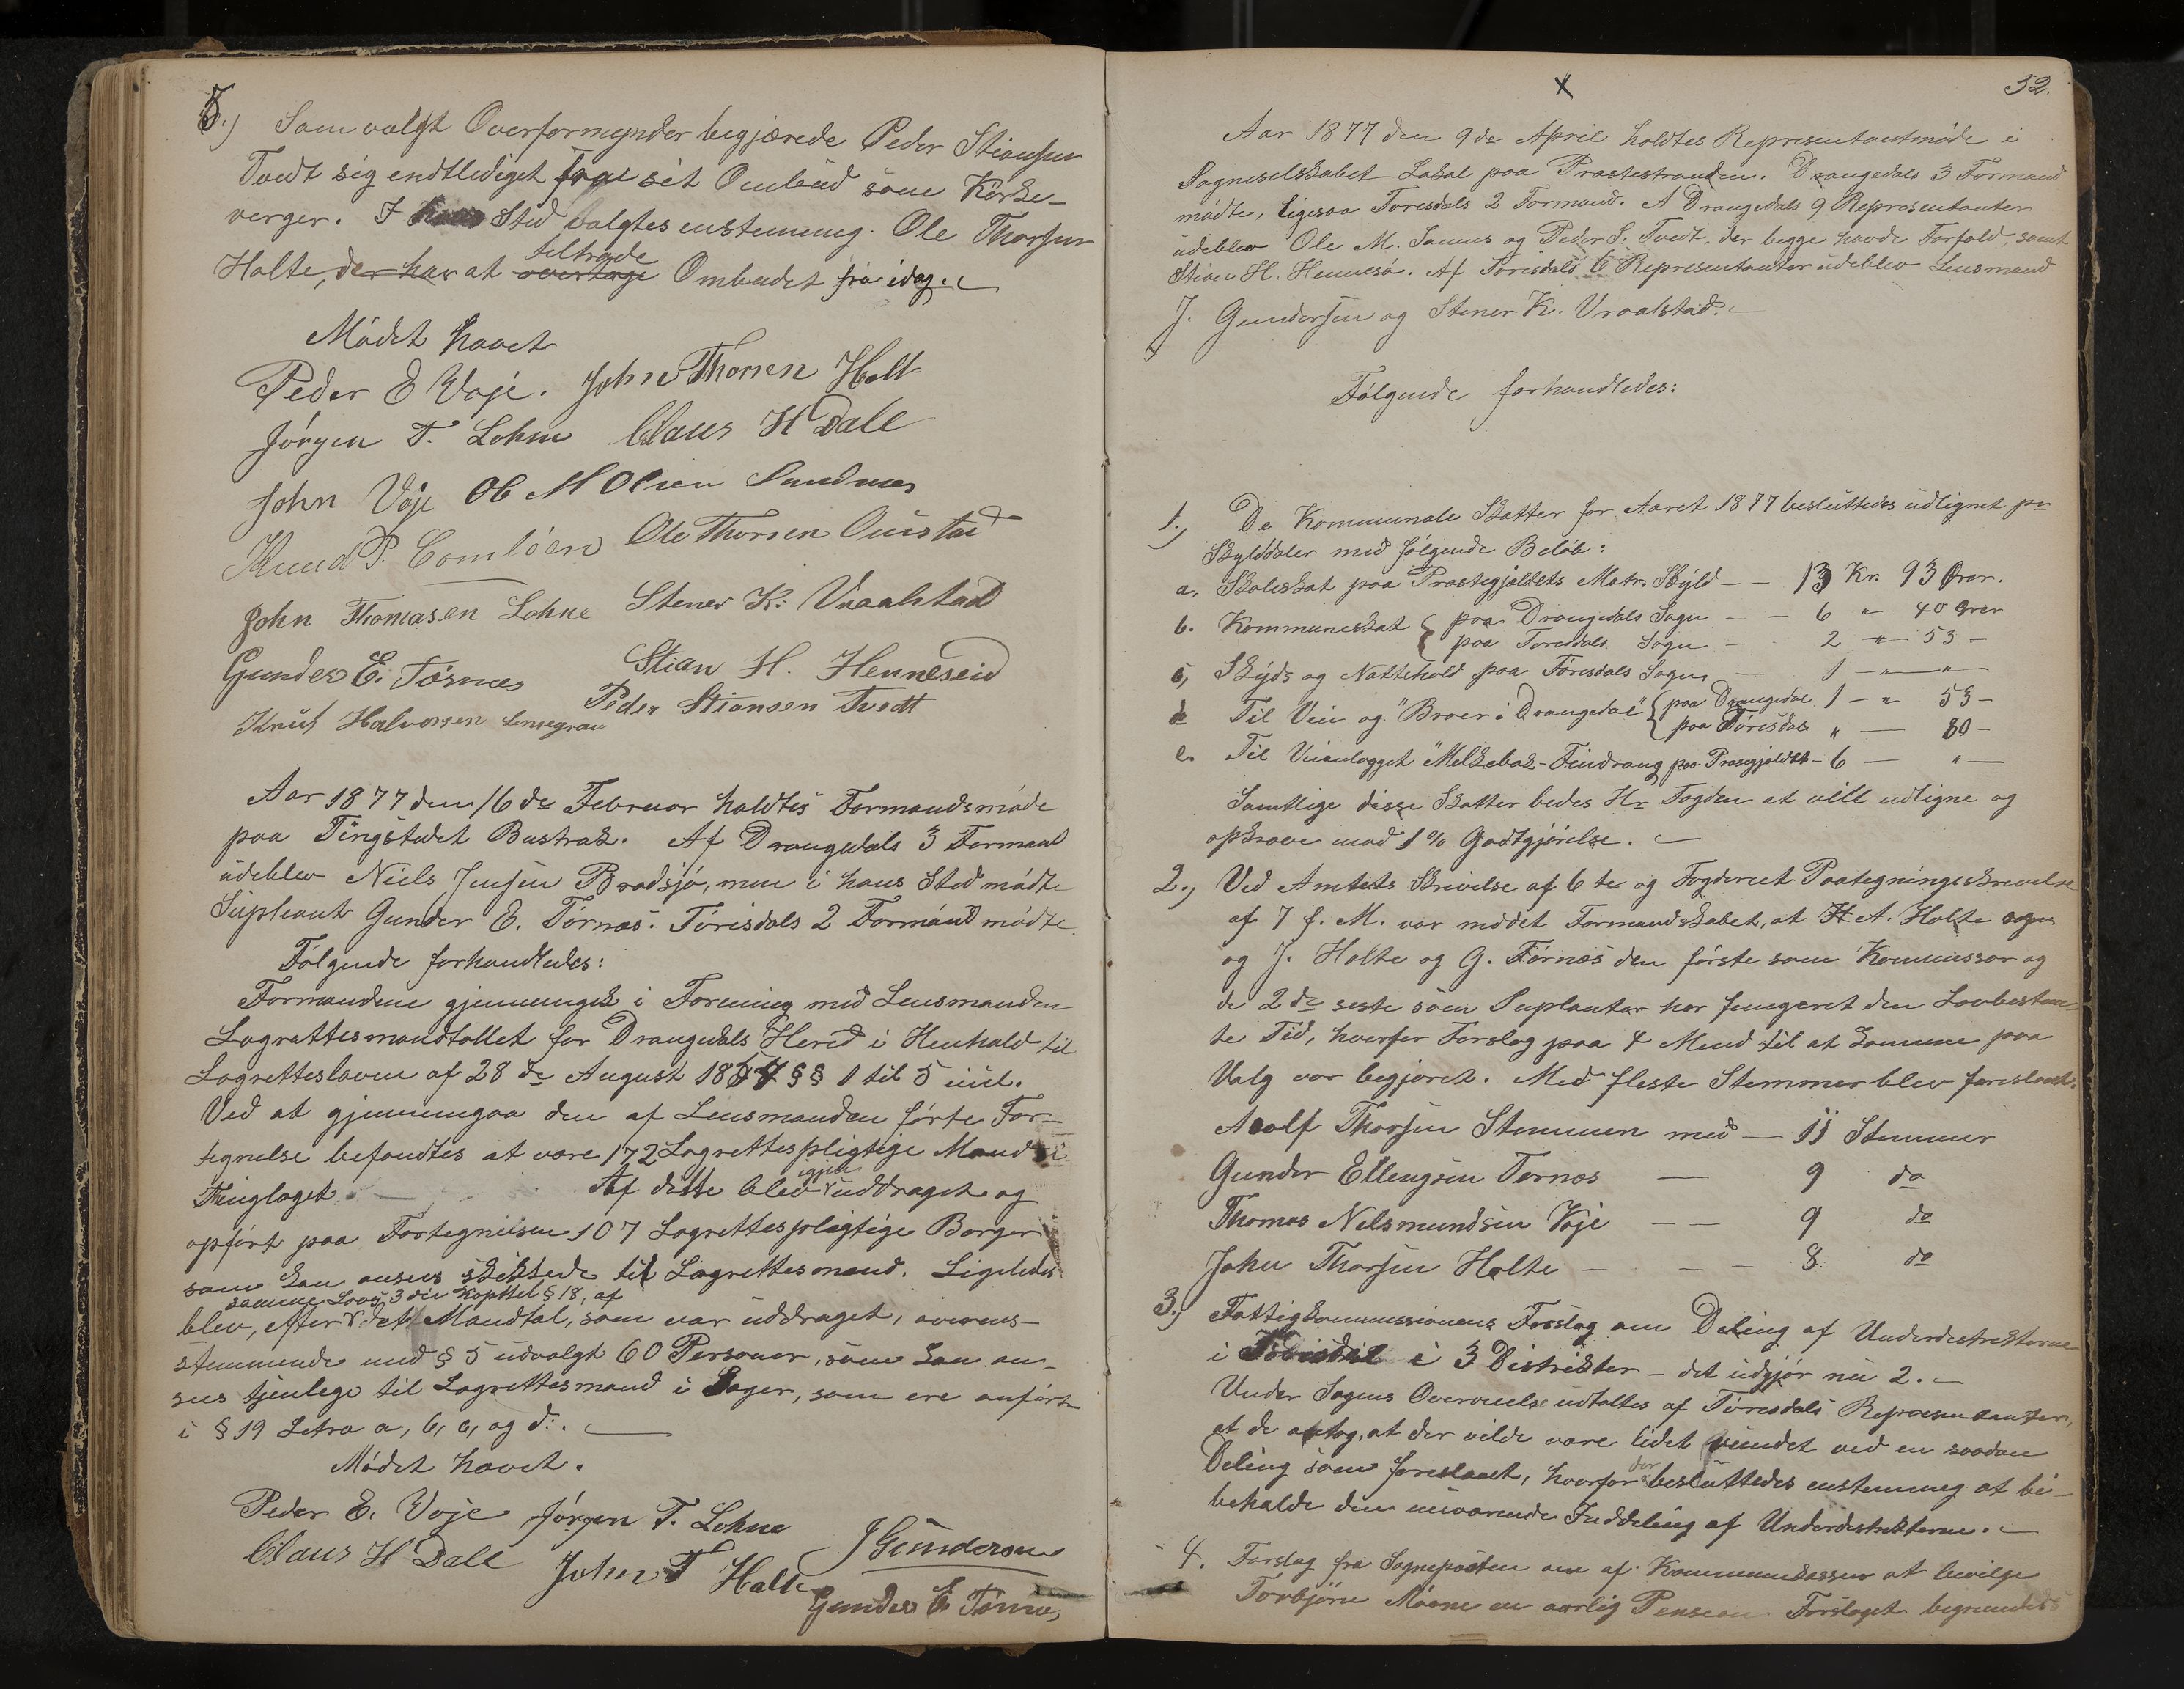 5.) Som valgt Overformynder begjærede Peder Stiansen
Tvedt sig endtlediget fra sit Ombud som Kirke-
verger. I hans Sted valgtes enstemmig Ole Thorsen
Holte, der har at overtage
tiltræde
Ombudet fra idag.
Mödet hævet
Peder E Voje. John Thorsen Holt
Jörgen T. Lohne Claus H Dale
John Voje Ol M Olsen Sandnes
Knud P. Ole Thorsen
John Thomasen Lohne Stener K. Vraalstad
Gunder E. Törnes Stian H. Henneseid
Peder Stiansen Tvedt
Knut Halvorsen
Aar 1877 den 16de Februar holdtes Formandsmöde
paa Tingstedet Bustrak. Af Drangedals 3 Formænd
udeblev Niels Jensen Bradsjö, men i hans Sted mödte
Supleant Gunder E. Törnæs. Törisdals 2 Formænd mödte.
Fölgende forhandledes:
Formændene gjennemgik i Forening med Lensmanden
Lagrettesmandtallet for Drangedals Hered i Henhold til
Lagretteloven af 28de August 1854 §§ 1 til 5 incl.
Ved at gjennemgaa den af Lensmanden förte For-
tegnelse befandtes at være 172 Lagrettespligtige Mænd i
Thinglaget. Af disse blev igjen uddraget og
opfört paa Fortegnelsen 107 Lagrettespligtige Borgere
som kan ansees skikkede til Lagrettesmænd. Ligeledes
samme Lovs 3die Kapittel § 18, af
blev, efter det Mandtal, som var uddraget, overens-
stemmende med § 5 udvalgt 60 Personer, som kan an-
sees tjenlege til Lagrettesmænd i Sager, som ere anförte
i § 19 Letra a, b, c, og d.
Mödet hævet.
Peder E. Voje Jörgen T. Lohne
J Gundersen
Claus H Dale John T Holte
Gunder E. Törnes
52.
Aar 1877 den 9de April holdtes Representantmöde i
Sogneselskabet Lokal paa Præstestranden. Drangedals 3 Formænd
mödte, ligesaa Törisdals 2 Formænd. A Drangedals 9 Representanter
udeblev Ole M. Sannes og Peder S. Tvedt, der begge havde Forfald, samt
Stian H. Hennesö. Af Törisdals 6 Representanter udeblev Lensmand
J. Gundersen og Stener K. Vraalstad.
Fölgende forhandledes:
1.) De Kommunale Skatter for Aaret 1877 besluttedes udlignet pr
Skylddaler med fölgende Belöb:
a. Skoleskat paa Præstegjældets Matr. Skyld — — 13 Kr. 93 Örer.
b. Kommuneskat { paa Drangedals Sogn — — 6 " 40 Örer
paa Torisdals Sogn — 2 " 53 —
c, Skyds og Nattehold paa Törisdals Sogn 1 — " — "
d Til Veie og "Broer i Drangedal" { paa Drangedal 1 — " 53 —
paa Törisdal " — 80 —
e. Til Veianlægget "Melkebæk-Findrang paa Præstegjældet — 6 — " —
Samtlige disse Skatter bedes Hr Fogden at vill udligne og
opkræve mod 1 % Godtgjörelse.
2.) Ved Amtets Skrivelse af 6te og Fogderiet Paategningsskrivelse
af 7 f. M. var meddet Formandskabet, at H A. Holte
og J. Holte og G. Törnæs den förste som Kommissær og
de 2de seste som Suplanter har fungeret den Lovbestem-
te Tid, hvorfor Forslag paa 4 Mend til at komme paa
Valg var begjæret. Med fleste Stemmer blev foreslaaet:
Aaolf Thorsen Stemmen med — 11 Stemmer
Gunder Ellengsen Tornæs — 9 do
Thomas Nelsmundsen Voje — — 9 do
John Thorsen Holte — — — 8 do
3.) Fattigkommissionens Forslag om Deling af Underdestrekterne
i Törisdal i 3 Distrikter — det udgjör nu 2. —
Under Sagens Overveielse udtaltes af Törisdals Representanter,
at de antog, at der vilde være lidet vundet ved en saadan
Deling som foreslaaet, hvorfor der besluttedes enstemmig at bi-
beholde den nuværende Inddeling af Underdestrekterne.
4. Forslag fra Sognepræsten om af Kommunekassen at bevilge
Torbjörn Moene en aarlig Pension. Forslaget begrundedes